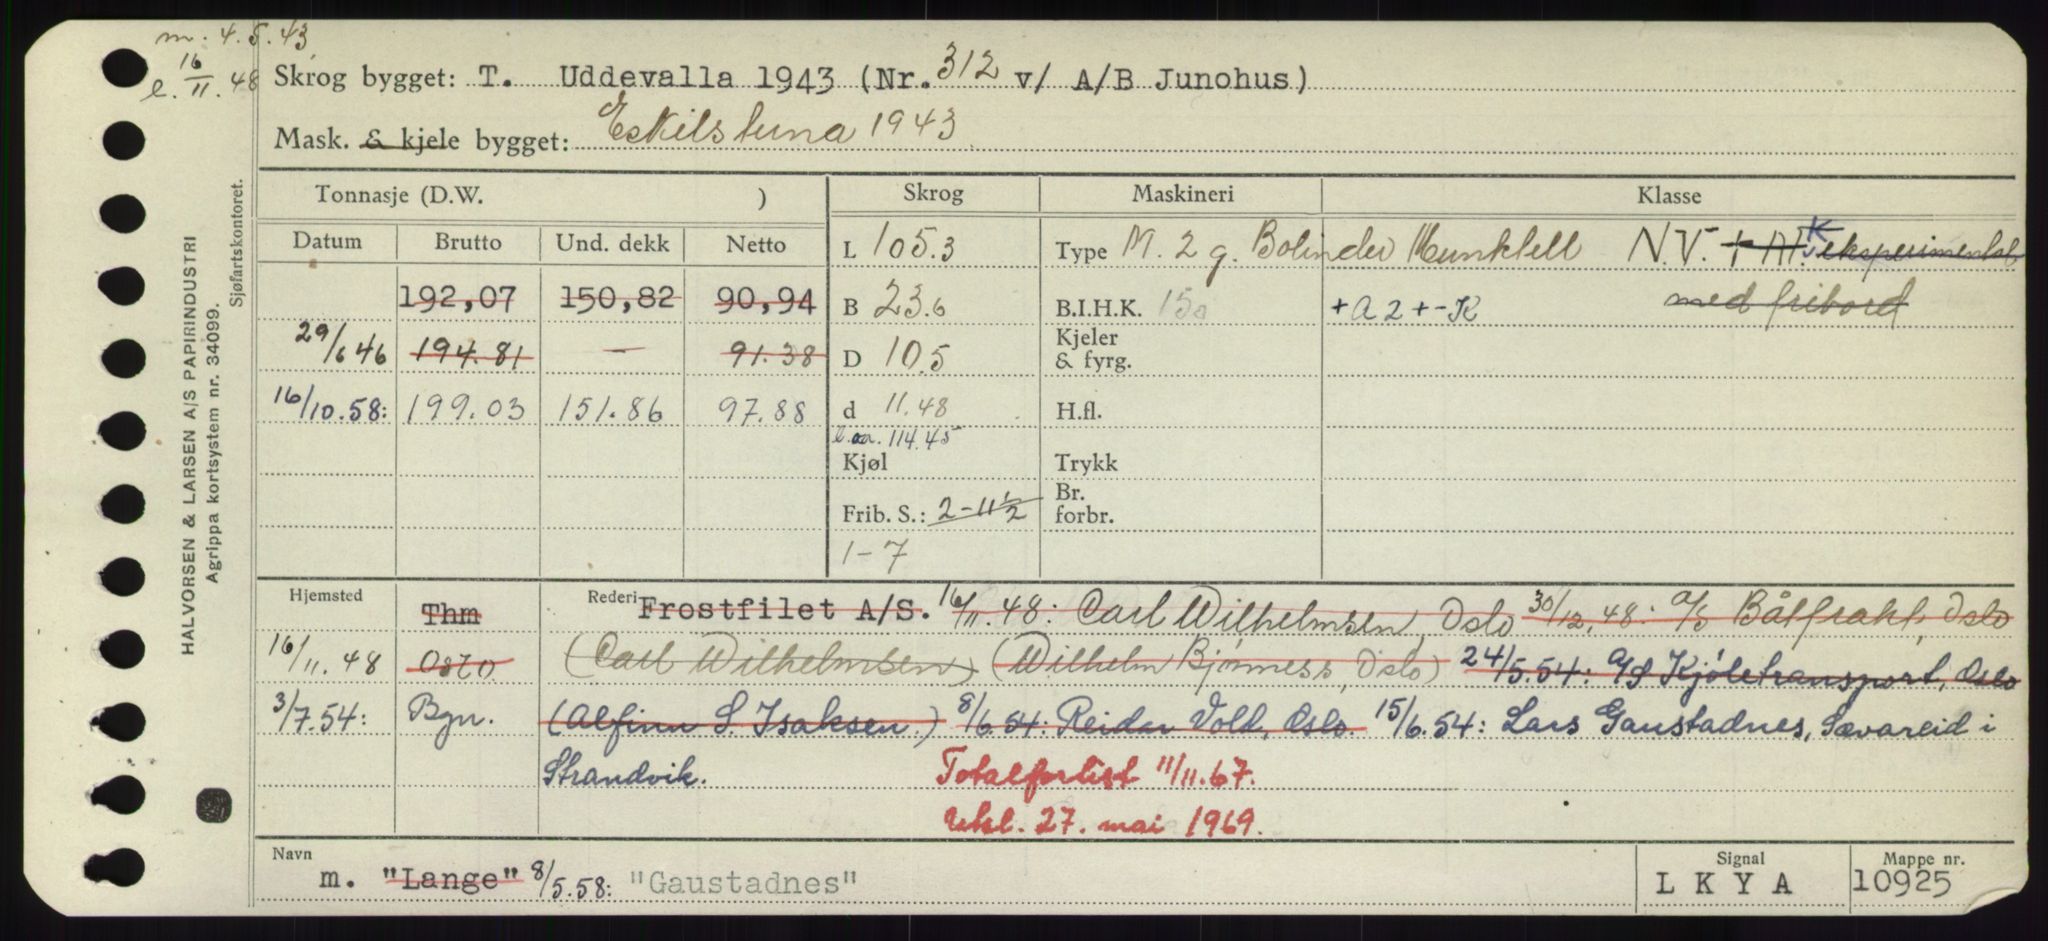 m. 4.5.43
l. 16/11.48
Skrog bygget: T. Uddevalla 1943 (Nr. 312 v/ A/B Junohus)
Mask. & kjele bygget: Eskilstuna 1943
HALVORSEN & LARSEN A/S PAPIRINDUSTRI
Agrippa kortsystem nr. 34099.
Sjøfartskontoret.
Tonnasje (D.W. ) Skrog Maskineri Klasse
Datum Brutto Und. dekk Netto L 105.3 Type M. 2 g. Bolinder Munktell N.V. + A1. K eksperimentat
192,07 150,82 90,94 B 23.6 B.I.H.K. 150 +A2+-K med fribord
29/6 46 194.81 — 91.38 D 10.5 Kjeler & fyrg.
16/10.58: 199.03 151.86 97.88 d 11.48 H.fl.
l.oa. 114.45
Kjøl Trykk
Frib. S.: 2-11½ Br. forbr.
1-7
Hjemsted Thm Rederi Frostfilet A/S. 16/11.48: Carl Wilhelmsen, Oslo 30/12.48: A/S Båtfrakt, Oslo
16/11.48 Oslo (Carl Wilhelmsen) (Wilhelm Bjønness, Oslo) 24/5.54: A/S Kjøletransport, Oslo
3/7.54: Bgn. (Alfinn S. Isaksen.) 8/6.54: Reidar Vold, Oslo. 15/6.54: Lars Gaustadnes, Sævareid i
Strandvik. Totalforlist 11/11.67.
Utsl. 27. mai 1969.
Navn Signal Mappe nr.
m. "Lange" 8/5.58: "Gaustadnes" LKYA 10925